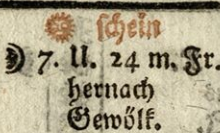 schein
7. U. 24 m. Fr.
hernach
Gewölk.